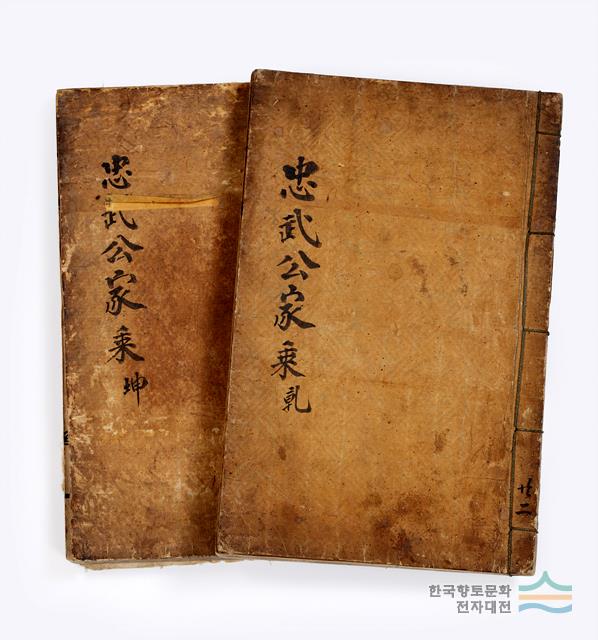 忠武公家乗坤
忠武公家乗乹
共二
한국향토문화
전자대전